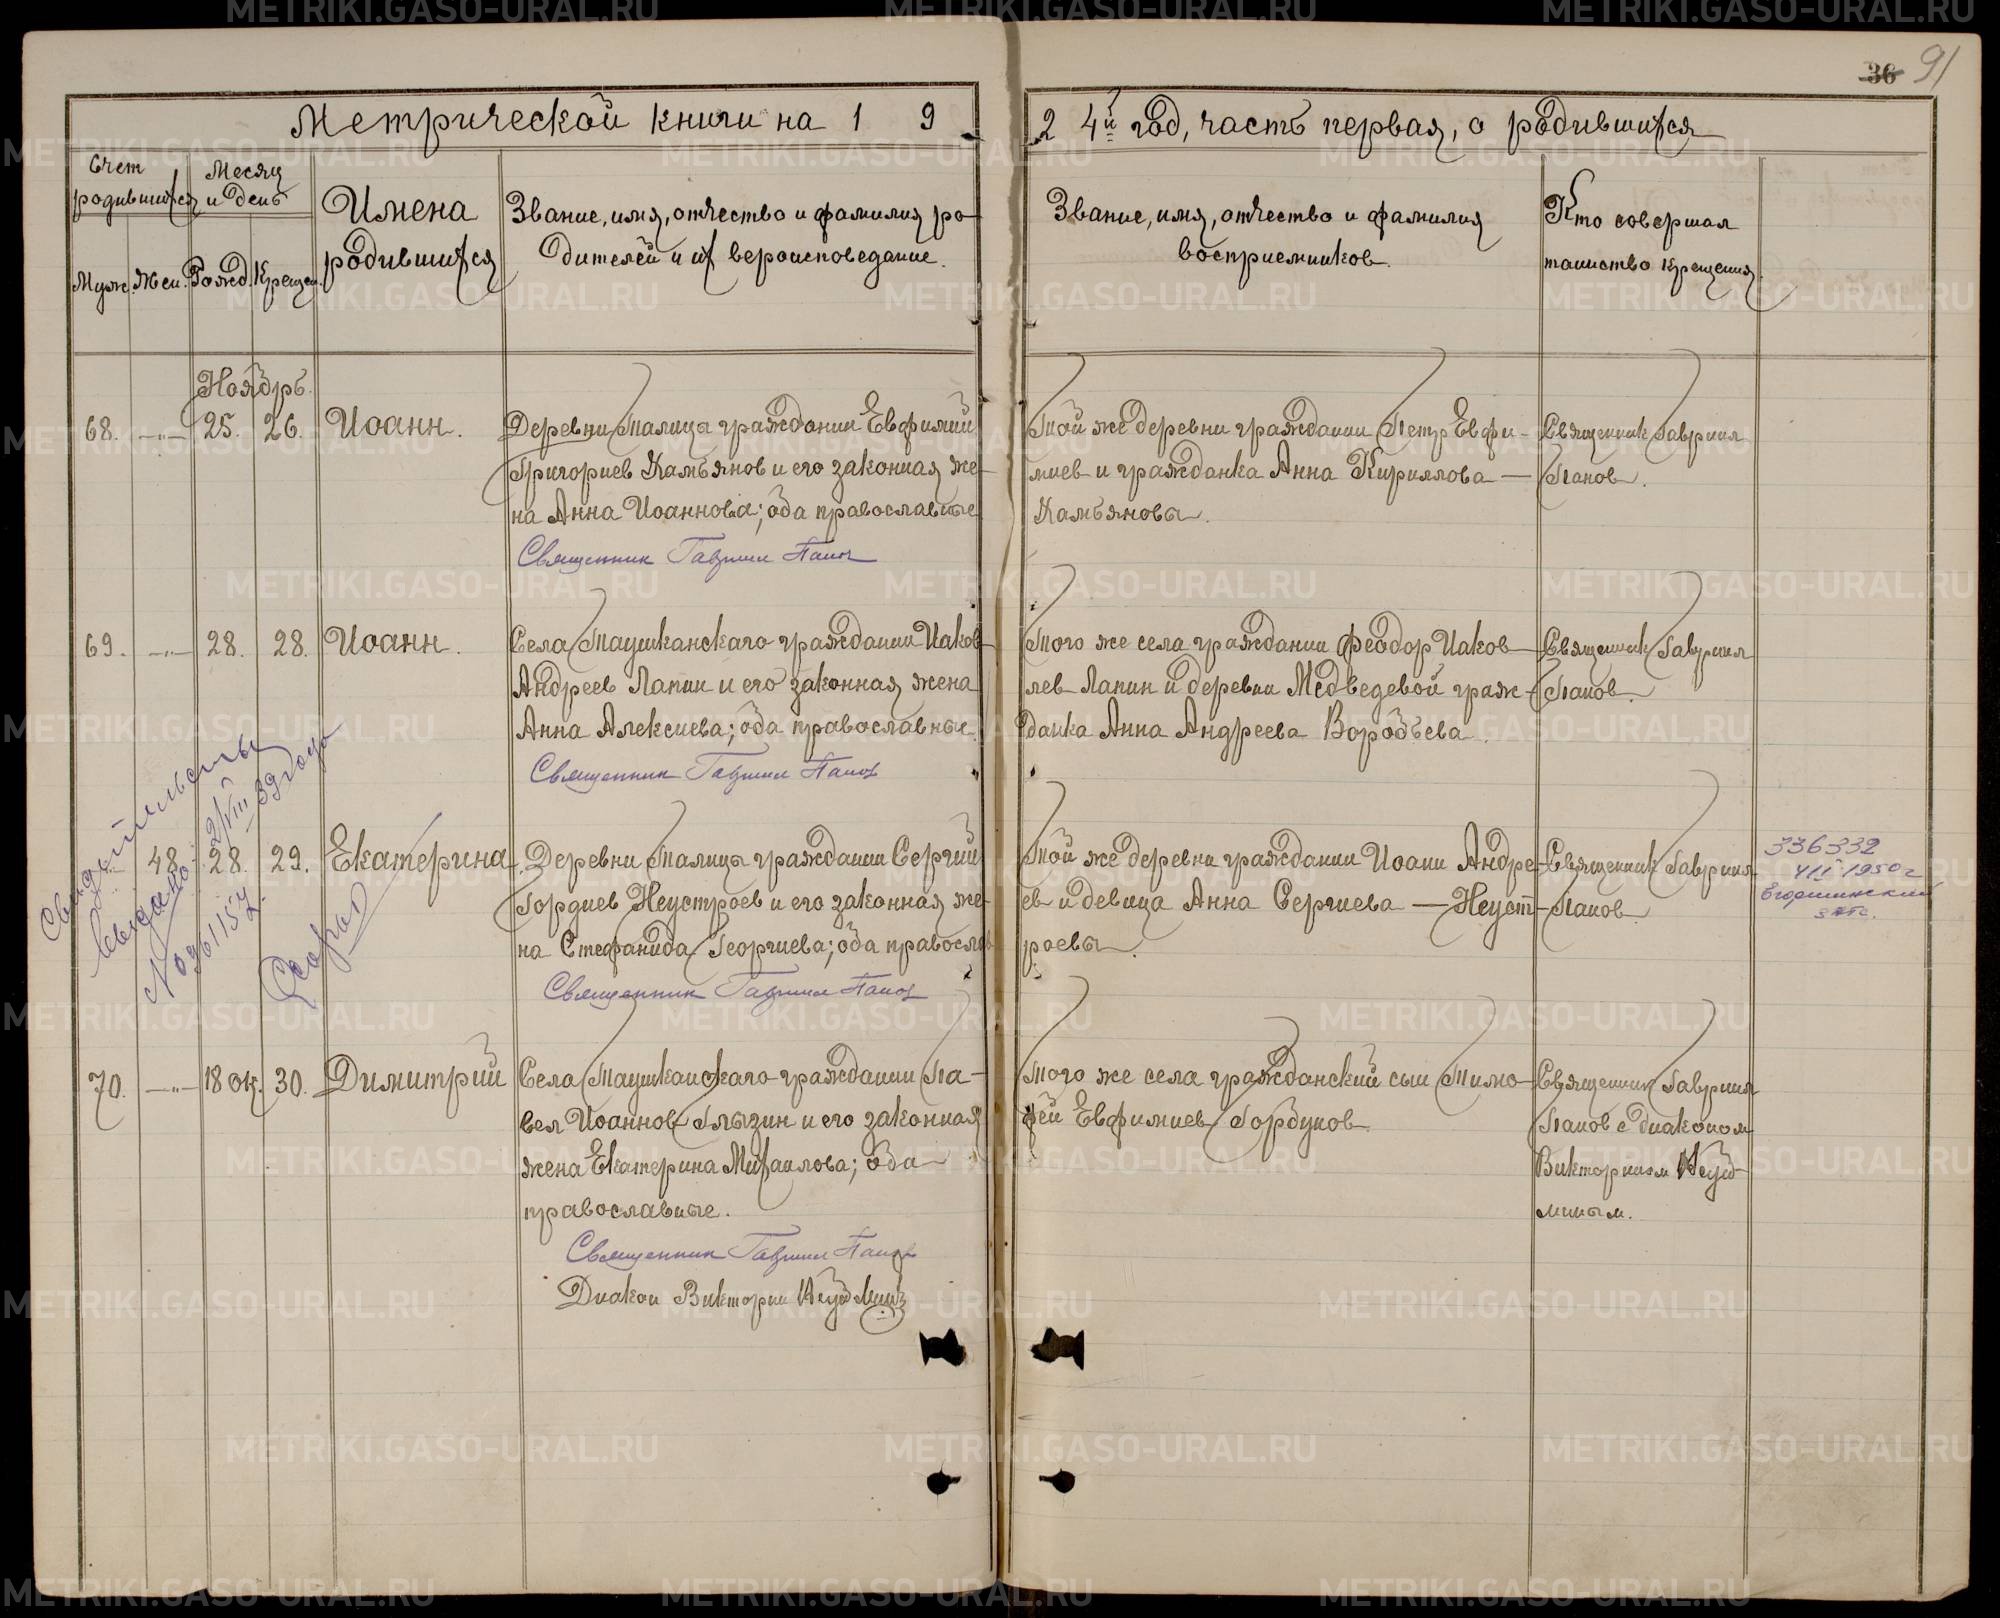 36 91
Метрической книги на 1 9
2 4й год, часть первая, о родившихся
Счет родившихся
Месяц и день
Имена родившихся
Звание, имя, отчество и фамилия ро-
дителей и их вероисповедание.
Звание, имя, отчество и фамилия
восприемников.
Кто совершал
таинство крещения
Муж. Жен. Рожд. Крещен.
Ноябрь.
68. —"— 25. 26. Иоанн.
Деревни Талицы гражданин Евфимий
Григориев Камьянов и его законная же-
на Анна Иоаннова; оба православные
Священник Гавриил Попов
Той же деревни гражданин Петр Евфи-
миев и гражданка Анна Кириллова —
Камьяновы.
Священник Гавриил
Попов.
69. —"— 28. 28. Иоанн.
Села Таушканскаго гражданин Иаков
Андреев Лапин и его законная жена
Анна Алексиева; оба православные.
Священник Гавриил Попов
Того же села гражданин Феодор Иаков-
лев Лапин и деревни Медведевой граж-
данка Анна Андреева Воробьева.
Священник Гавриил
Попов.
48. 28. 29. Екатерина.
Деревни Талицы гражданин Сергий
Гордиев Неустроев и его законная же-
на Стефанида Георгиева; оба правосла
Священник Гавриил Попов
Той же деревни гражданин Иоанн Андре-
ев и девица Анна Сергиева — Неуст-
роевы.
Священник Гавриил
Попов
336332
1950 г
Егоршинский
загс.
2/VIII 39 года
N 0961157
70. —"— 18 ок. 30. Димитрий
Села Таушканскаго гражданин Па-
вел Иоаннов Глызин и его законная
жена Екатерина Михаилова; оба
православные.
Священник Гавриил Попов
Диакон Викторин
Того же села гражданский сын Тимо-
фей Евфимиев Гордунов.
Священник Гавриил
Попов с диаконом
Викторином
METRIKI.GASO-URAL.RU